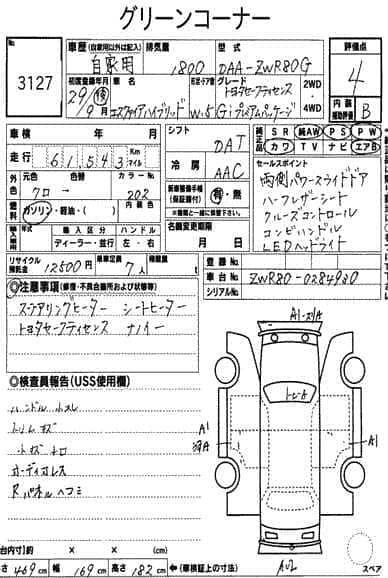 グリーンコーナー
No. 3127
車歴 (自家用以外は記入) 自家用 排気量 1800 型式 DAA-ZWR80G 評価点 4
初度登録年月 29/9 車名 エスクァイアハイブリッド 形状・ドア数 W・5 グレード トヨタセーフティセンス Gi・プレミアムパッケージ 2WD・4WD 内装補助評価 B
車検 年 月 シフト DAT 純正品 SR 純AW PS PW
カワ TV ナビ エアB
走行 61543 Km マイル 冷房 AAC セールスポイント
外色 元色 クロ → 色替 カラーNo. 202 両側パワースライドドア
燃料 ガソリン・軽油・( ) 内装色 新車整備手帳(保証書付) 有・無 ハーフレザーシート
※機関と一緒に保管下さい。 クルーズコントロール
輸入車用 年式 輸入区分 ハンドル 名義変更期限 コンビハンドル
ディーラー・並行 左・右 月 日 LEDヘッドライト
リサイクル預託金 12500円 乗車定員 7人 積載量 登録No.
車台No. ZWR80-0284930
シリアルNo.
◎注意事項 (修復・不具合箇所および状態等)
ステアリングヒーター シートヒーター
トヨタセーフティセンス ナノイー
◎検査員報告 (USS使用欄)
ハンドル小スレ
トリムキズ
小キズ
オーディオレス
Rパネルヘコミ
A1
トレーA
A1
A2
スペア
荷台内寸(約 × × (cm)
長さ 469cm 幅 169cm 高さ 182cm ←(車検証上の寸法)